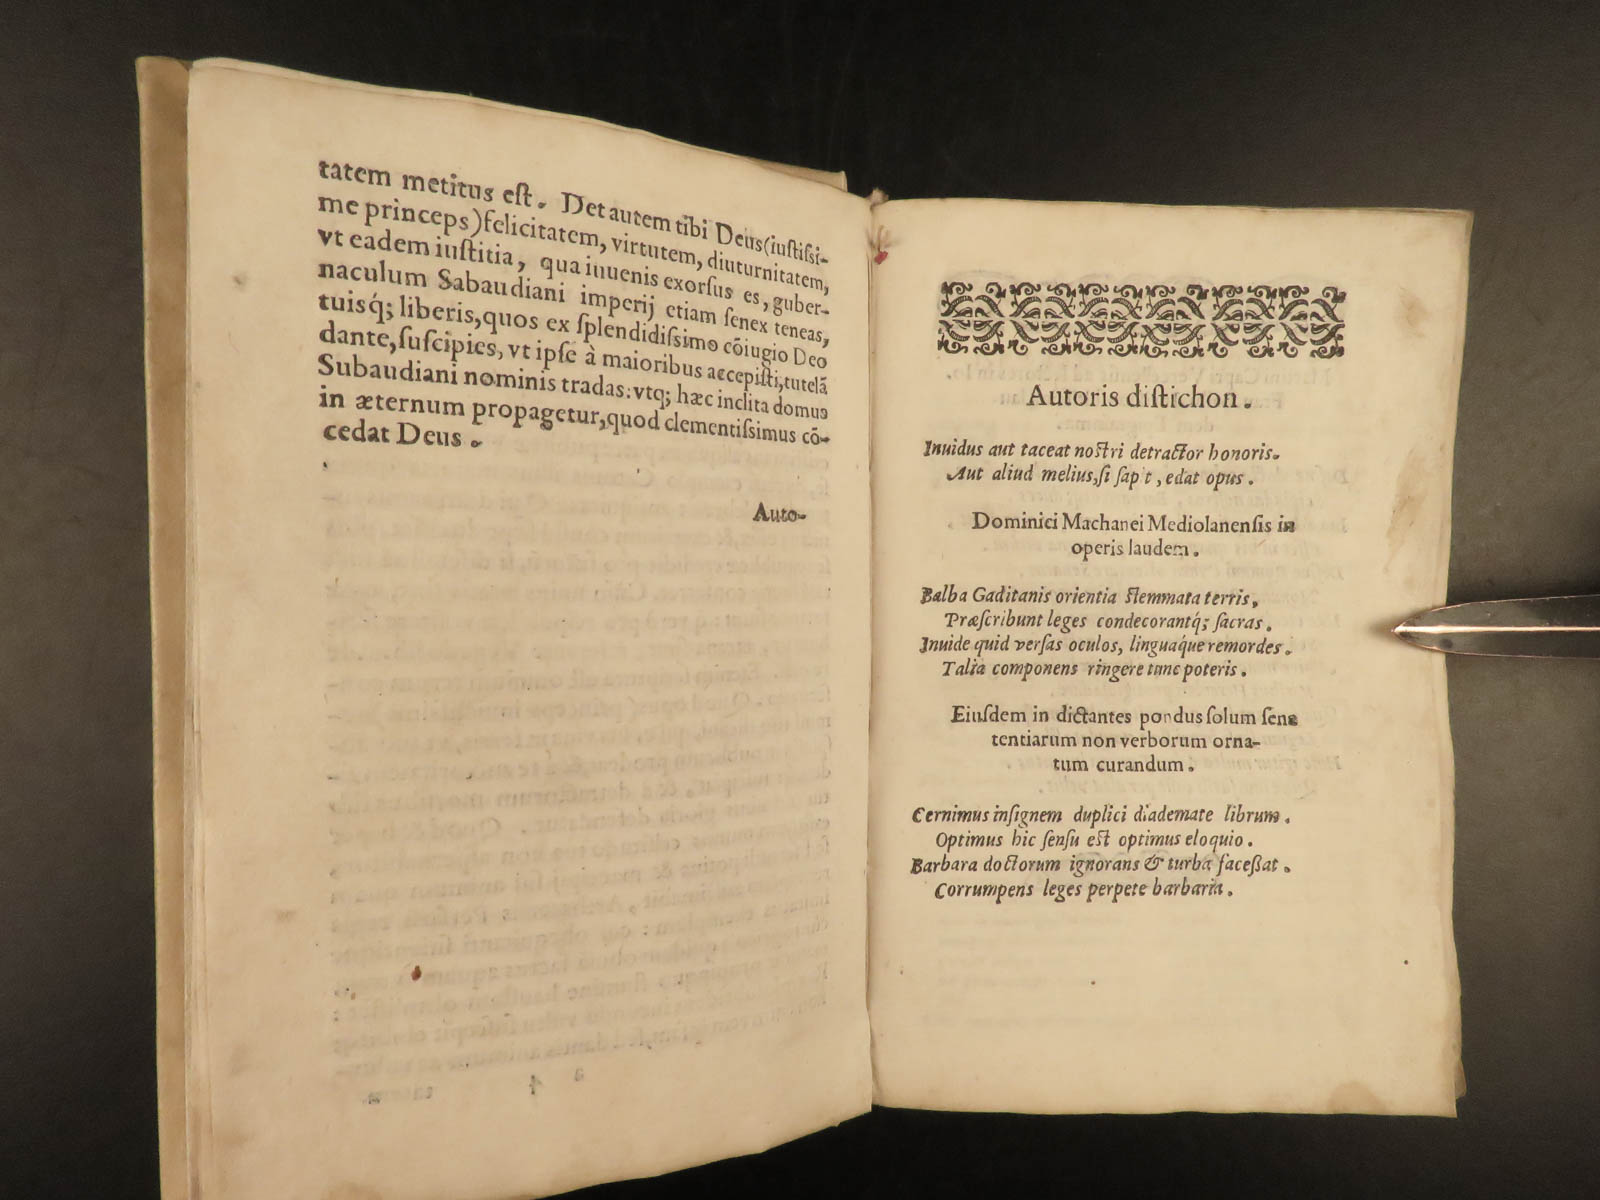 tatem metitus eſt. Det autem tibi Deus (iuſtiſsi-
me princeps) felicitatem, virtutem, diuturnitatem,
vt eadem iuſtitia, qua iuuenis exorſus es, guber-
naculum Sabaudiani imperij etiam ſenex teneas,
tuisq́; liberis, quos ex ſplendidiſsimo cõiugio Deo
dante, ſuſcipies, vt ipſe à maioribus accepiſti, tutelã
Subaudiani nominis tradas: vtq; hæc inclita domus
in æternum propagetur, quod clementiſsimus cõ-
cedat Deus.
Auto-
Autoris diſtichon.
Inuidus aut taceat noſtri detractor honoris.
Aut aliud melius, ſi ſapit, edat opus.
Dominici Machanei Mediolanenſis in
operis laudem.
Balba Gaditanis orientia ſtemmata terris,
Præſcribunt leges condecorantq́; ſacras.
Inuide quid verſas oculos, linguaq́ue remordes.
Talia componens ringere tunc poteris.
Eiuſdem in dictantes pondus ſolum ſen-
tentiarum non verborum orna-
tum curandum.
Cernimus inſignem duplici diademate librum.
Optimus hic ſenſu eſt optimus eloquio.
Barbara doctorum ignorans & turba faceßat.
Corrumpens leges perpete barbaria.